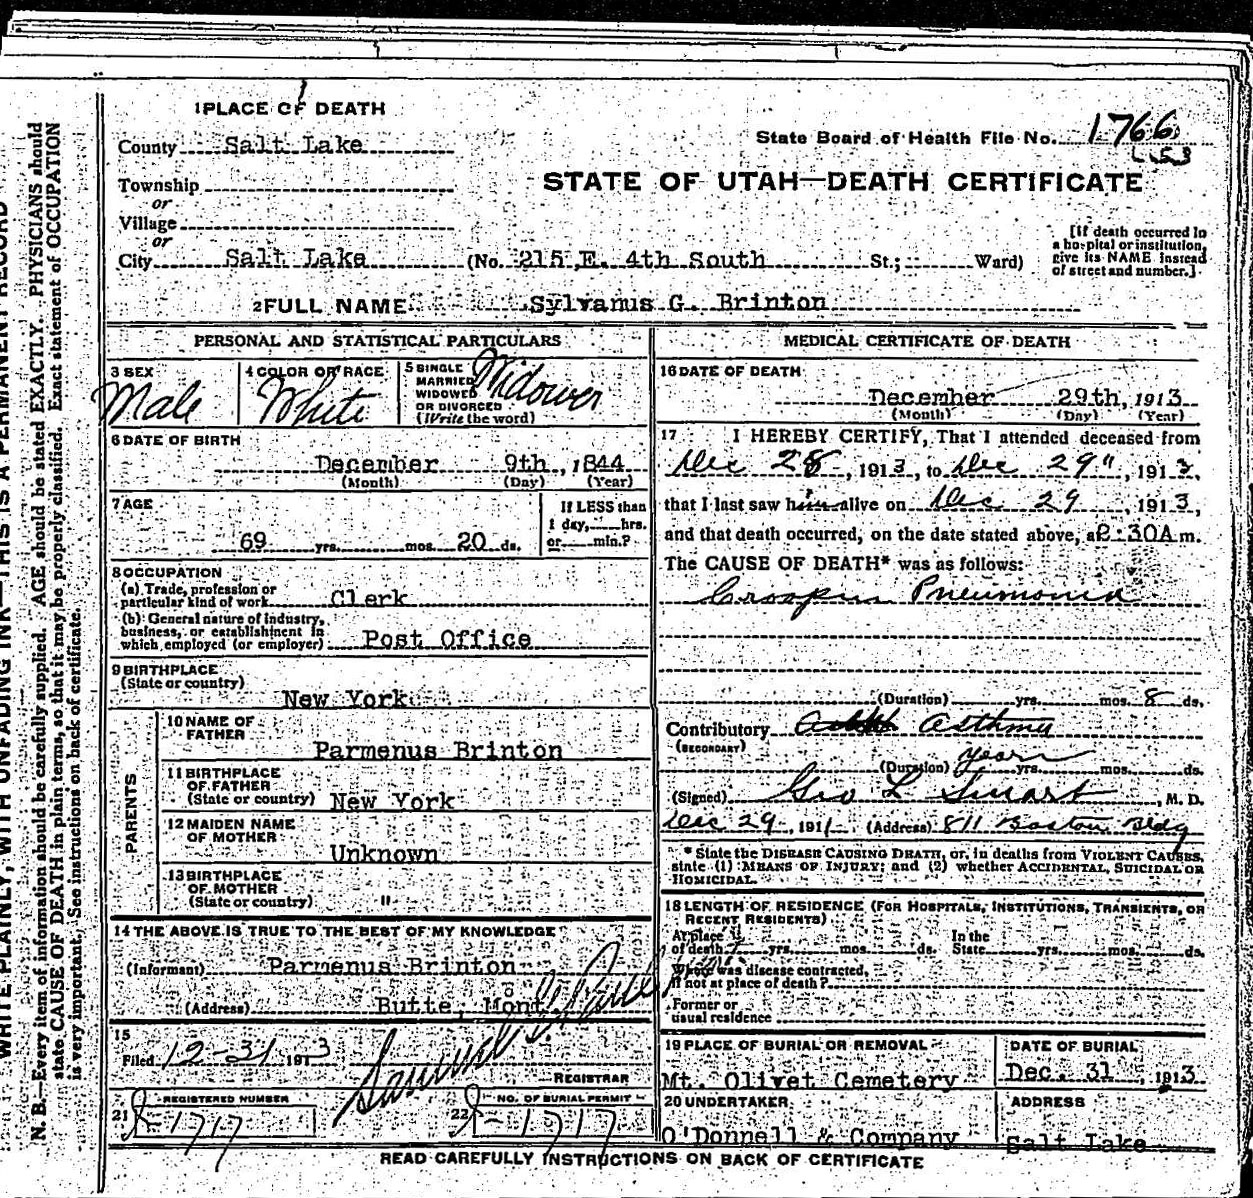 1 PLACE OF DEATH
County Salt Lake
State Board of Health File No. 1766
Township
or
STATE OF UTAH—DEATH CERTIFICATE
Village
or
City Salt Lake (No. 215 E. 4th South St.; Ward)
[If death occurred in a hospital or institution, give its NAME instead of street and number.]
2 FULL NAME Sylvanus G. Brinton
PERSONAL AND STATISTICAL PARTICULARS
3 SEX
Male
4 COLOR OR RACE
White
5 SINGLE
MARRIED
WIDOWED
OR DIVORCED
(Write the word)
Widower
6 DATE OF BIRTH
December 9th, 1844
(Month) (Day) (Year)
7 AGE
69 yrs. mos. 20 ds.
If LESS than
1 day, hrs.
or min.?
8 OCCUPATION
(a) Trade, profession or
particular kind of work Clerk
(b) General nature of industry,
business, or establishment in
which employed (or employer) Post Office
9 BIRTHPLACE
(State or country)
New York
PARENTS
10 NAME OF
FATHER
Parmenus Brinton
11 BIRTHPLACE
OF FATHER
(State or country) New York
12 MAIDEN NAME
OF MOTHER
Unknown
13 BIRTHPLACE
OF MOTHER
(State or country) "
14 THE ABOVE IS TRUE TO THE BEST OF MY KNOWLEDGE
(Informant) Parmenus Brinton
(Address) Butte, Mont.
15
Filed 12-31 1913
REGISTRAR
21 REGISTERED NUMBER
1717
22 NO. OF BURIAL PERMIT
1717
MEDICAL CERTIFICATE OF DEATH
16 DATE OF DEATH
December 29th, 1913
(Month) (Day) (Year)
17 I HEREBY CERTIFY, That I attended deceased from
Dec 28, 1913, to Dec 29", 1913,
that I last saw him alive on Dec 29, 1913,
and that death occurred, on the date stated above, at 2:30A m.
The CAUSE OF DEATH* was as follows:
Pneumonia
(Duration) yrs. mos. 8 ds.
Contributory Asthma
(SECONDARY)
(Duration) years yrs. mos. ds.
(Signed) Geo L Smart, M. D.
Dec 29, 191 (Address) 811 Boston Bldg
* State the DISEASE CAUSING DEATH, or, in deaths from VIOLENT CAUSES,
state (1) MEANS OF INJURY; and (2) whether ACCIDENTAL, SUICIDAL OR
HOMICIDAL.
18 LENGTH OF RESIDENCE (FOR HOSPITALS, INSTITUTIONS, TRANSIENTS, OR
RECENT RESIDENTS)
At place In the
of death yrs. mos. ds. State yrs. mos. ds.
Where was disease contracted,
if not at place of death?
Former or
usual residence
19 PLACE OF BURIAL OR REMOVAL
Mt. Olivet Cemetery
DATE OF BURIAL
Dec. 31, 1913
20 UNDERTAKER
O'Donnell & Company
ADDRESS
Salt Lake
READ CAREFULLY INSTRUCTIONS ON BACK OF CERTIFICATE
WRITE PLAINLY, WITH UNFADING INK—THIS IS A PERMANENT RECORD
N. B.—Every item of information should be carefully supplied. AGE should be stated EXACTLY. PHYSICIANS should
state CAUSE OF DEATH in plain terms, so that it may be properly classified. Exact statement of OCCUPATION
is very important. See instructions on back of certificate.